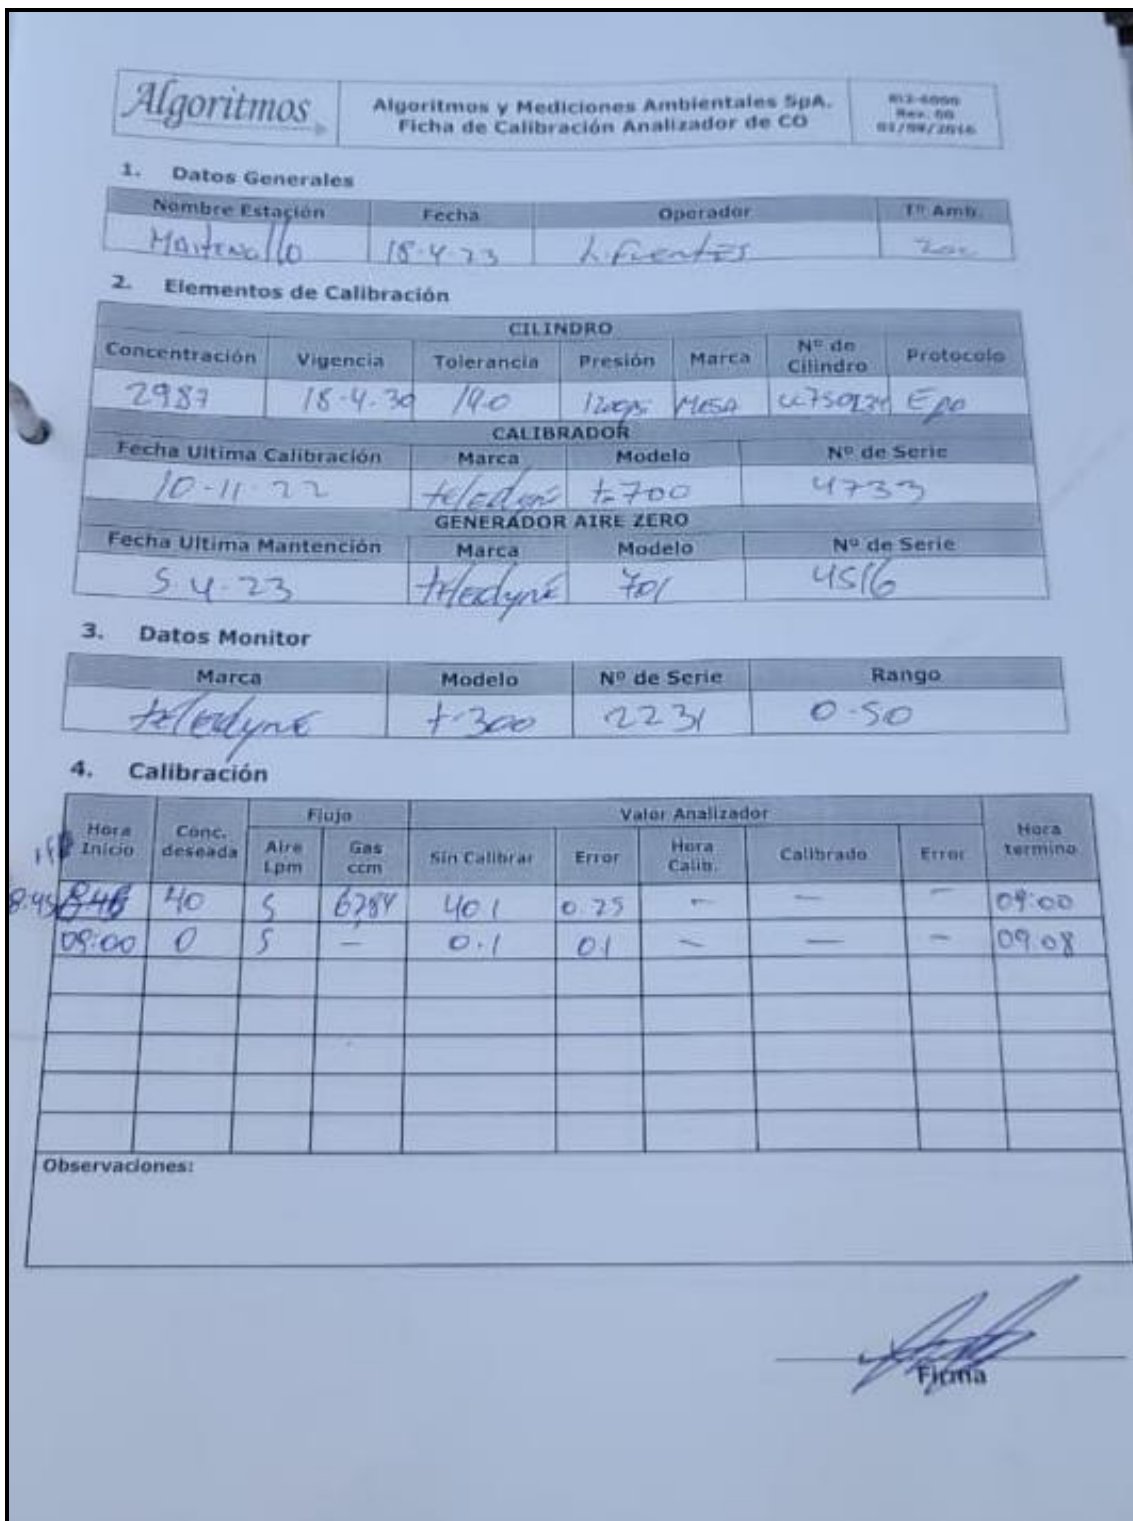 Algoritmos
Algoritmos y Mediciones Ambientales SpA.
Ficha de Calibración Analizador de CO
Rev. 00
01/09/2016
1. Datos Generales
Nombre Estación Fecha Operador Tº Amb.
18-4-23 L. Fuentes
2. Elementos de Calibración
CILINDRO
Concentración Vigencia Tolerancia Presión Marca Nº de Cilindro Protocolo
2987 18-4-30 MESA
CALIBRADOR
Fecha Ultima Calibración Marca Modelo Nº de Serie
10-11-22 teledyne t-700 4733
GENERADOR AIRE ZERO
Fecha Ultima Mantención Marca Modelo Nº de Serie
5-4-23 teledyne 701 4516
3. Datos Monitor
Marca Modelo Nº de Serie Rango
teledyne t-300 2231 0-50
4. Calibración
Hora Inicio Conc. deseada Flujo Valor Analizador Hora termino
Aire Lpm Gas ccm Sin Calibrar Error Hora Calib. Calibrado Error
8:45 40 5 40.1 0.25 - - - 09:00
09:00 0 5 - 0.1 0.1 - - - 09:08
Observaciones:
Firma